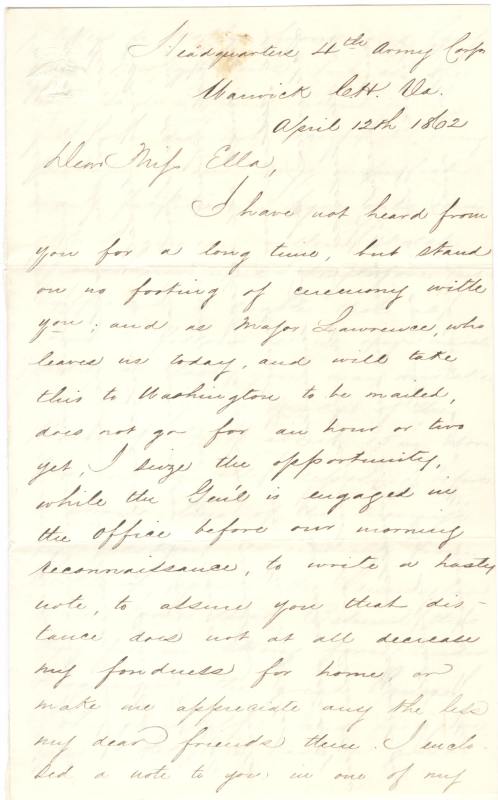 Headquarters 4th Army Corps
Warwick C.H. Va.
April 12th 1862
Dear Miss Ella,
I have not heard from
you for a long time, but stand
on no footing of ceremony with
you; and as Major Lawrence, who
leaves us today, and will take
this to Washington to be mailed,
does not go for an hour or two
yet, I seize the opportunity,
while the Gen'l is engaged in
the office before our morning
reconnaissance, to write a hasty
note, to assure you that dis-
tance does not at all decrease
my fondness for home, or
make me appreciate any the less
my dear friends there. I enclo-
sed a note to you in one of my